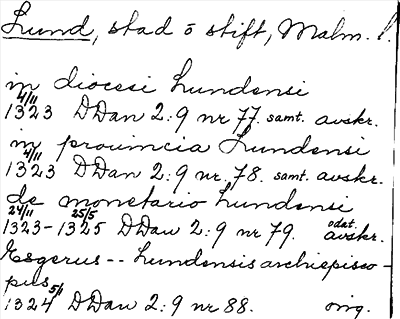 Lund, stad o stift, Malm. l.
in diocesi Lundensi
4/11
1323 DDan 2:9 nr 77. samt. avskr.
in prouincia Lundensi
4/11
1323 DDan 2:9 nr 78. samt. avskr.
de monetario Lundensi
24/11 25/5 odat.
1323-1325 DDan 2:9 nr 79. avskr.
Esgerus -- Lundensis archiepisco-
pus
5/1
1324 DDan 2:9 nr 88. orig.